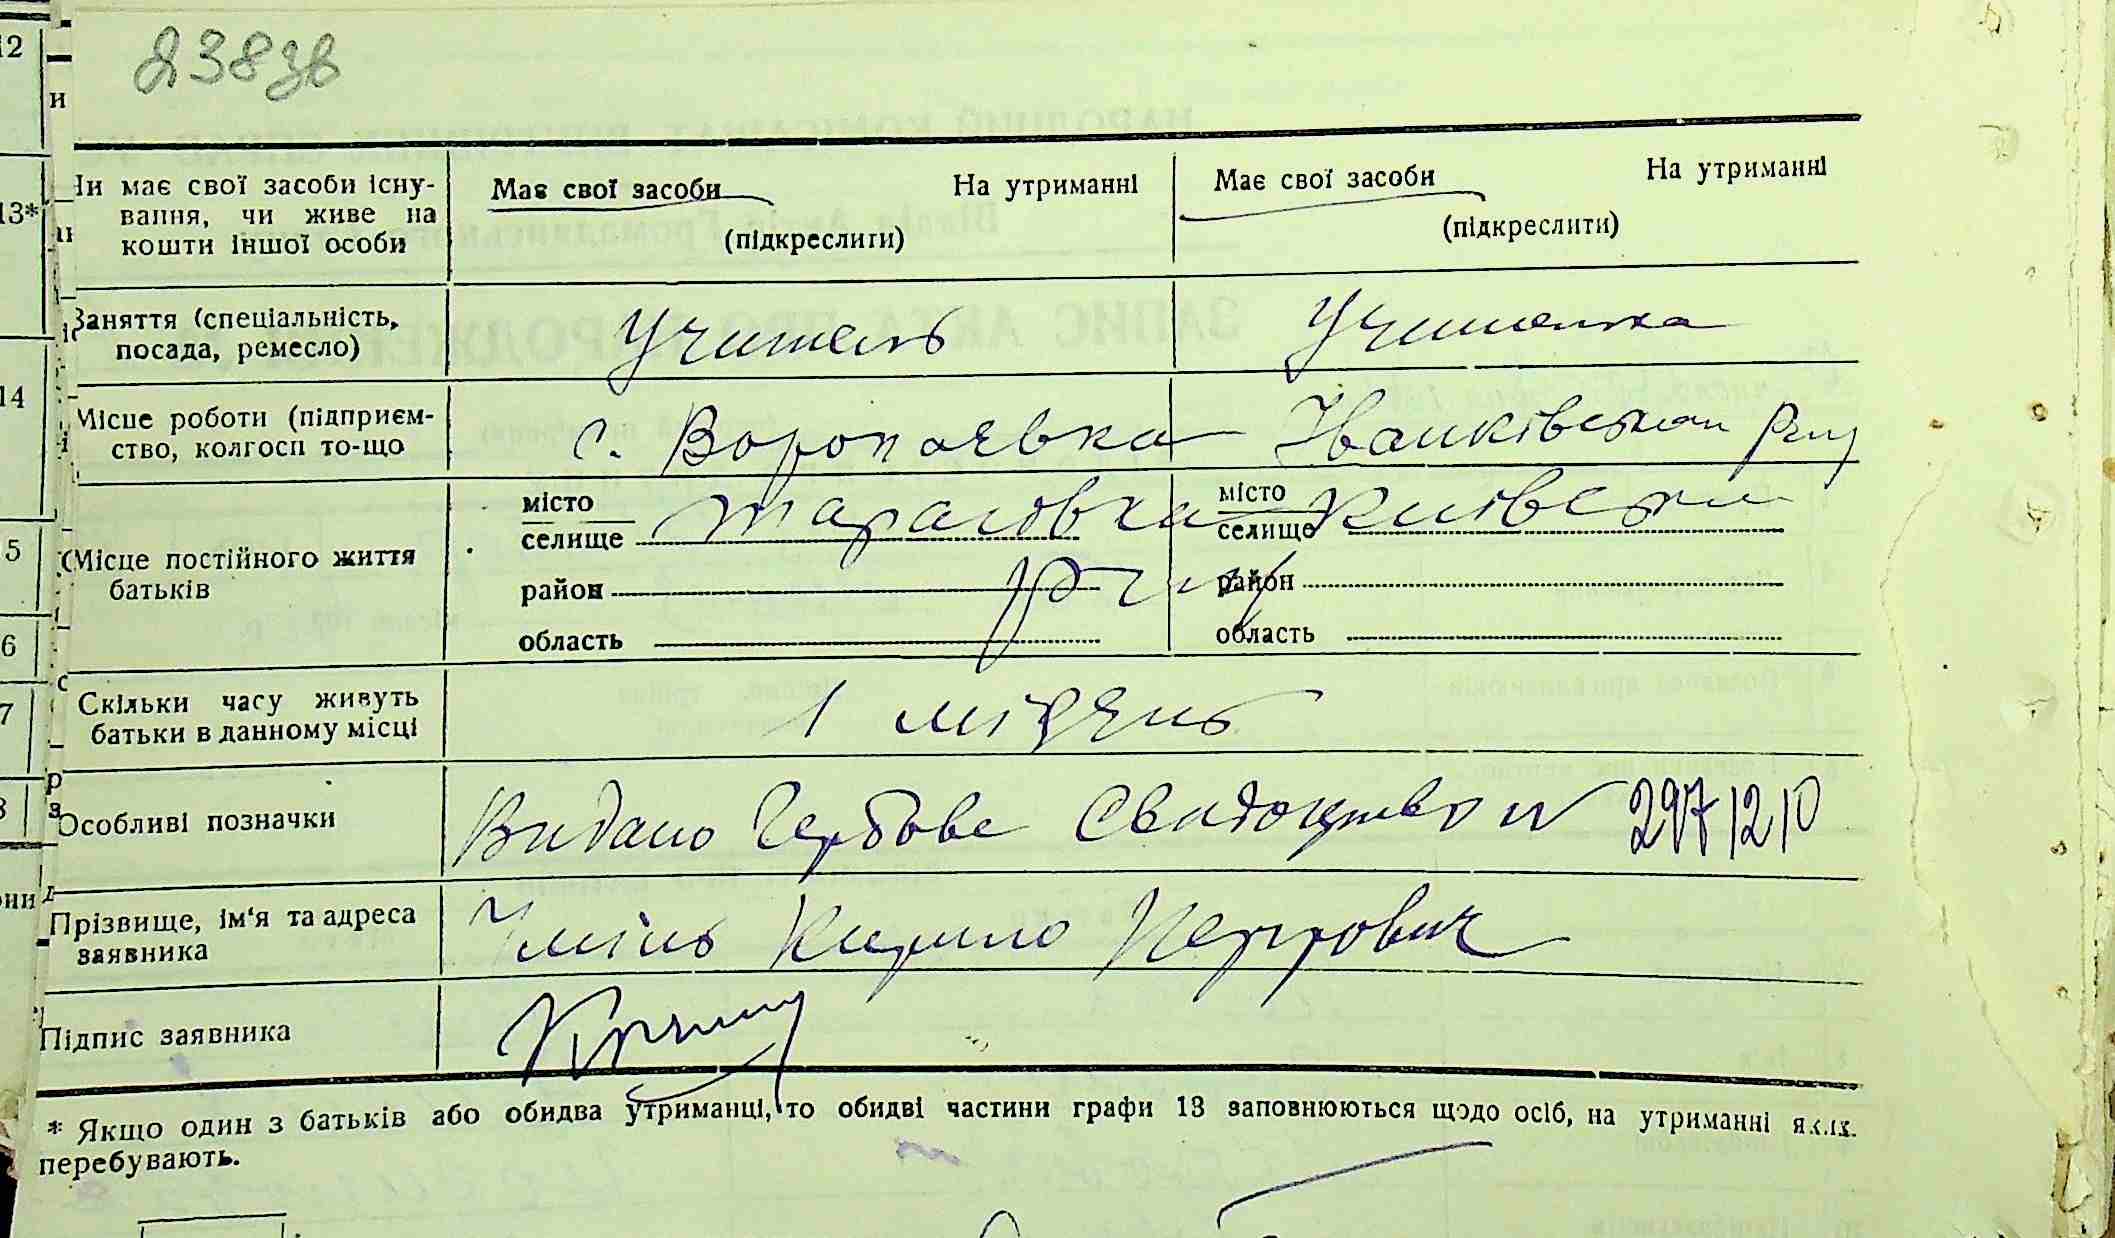 238зв
12
и
13*
14
5
6
7
Чи має свої засоби існування, чи живе на кошти іншої особи
Має свої засоби На утриманні
(підкреслити)
Має свої засоби На утриманні
(підкреслити)
Заняття (спеціальність,
посада, ремесло)
Учитель
Учителька
Місце роботи (підприєм-
ство, колгосп то-що
с. Воропаєвка Іванківського р-ну
Місце постійного життя
батьків
місто
селище
район
область
Тарасовка Київського
р-ну
місто
селище
район
область
Скільки часу живуть
батьки в данному місці
1 місяць
Особливі позначки
Видано Гербове Свидоцтво N 297120
Прізвище, ім'я та адреса
заявника
Кирило Петрович
Підпис заявника
* Якщо один з батьків або обидва утриманці, то обидві частини графи 13 заповнюються щодо осіб, на утриманні яких
перебувають.